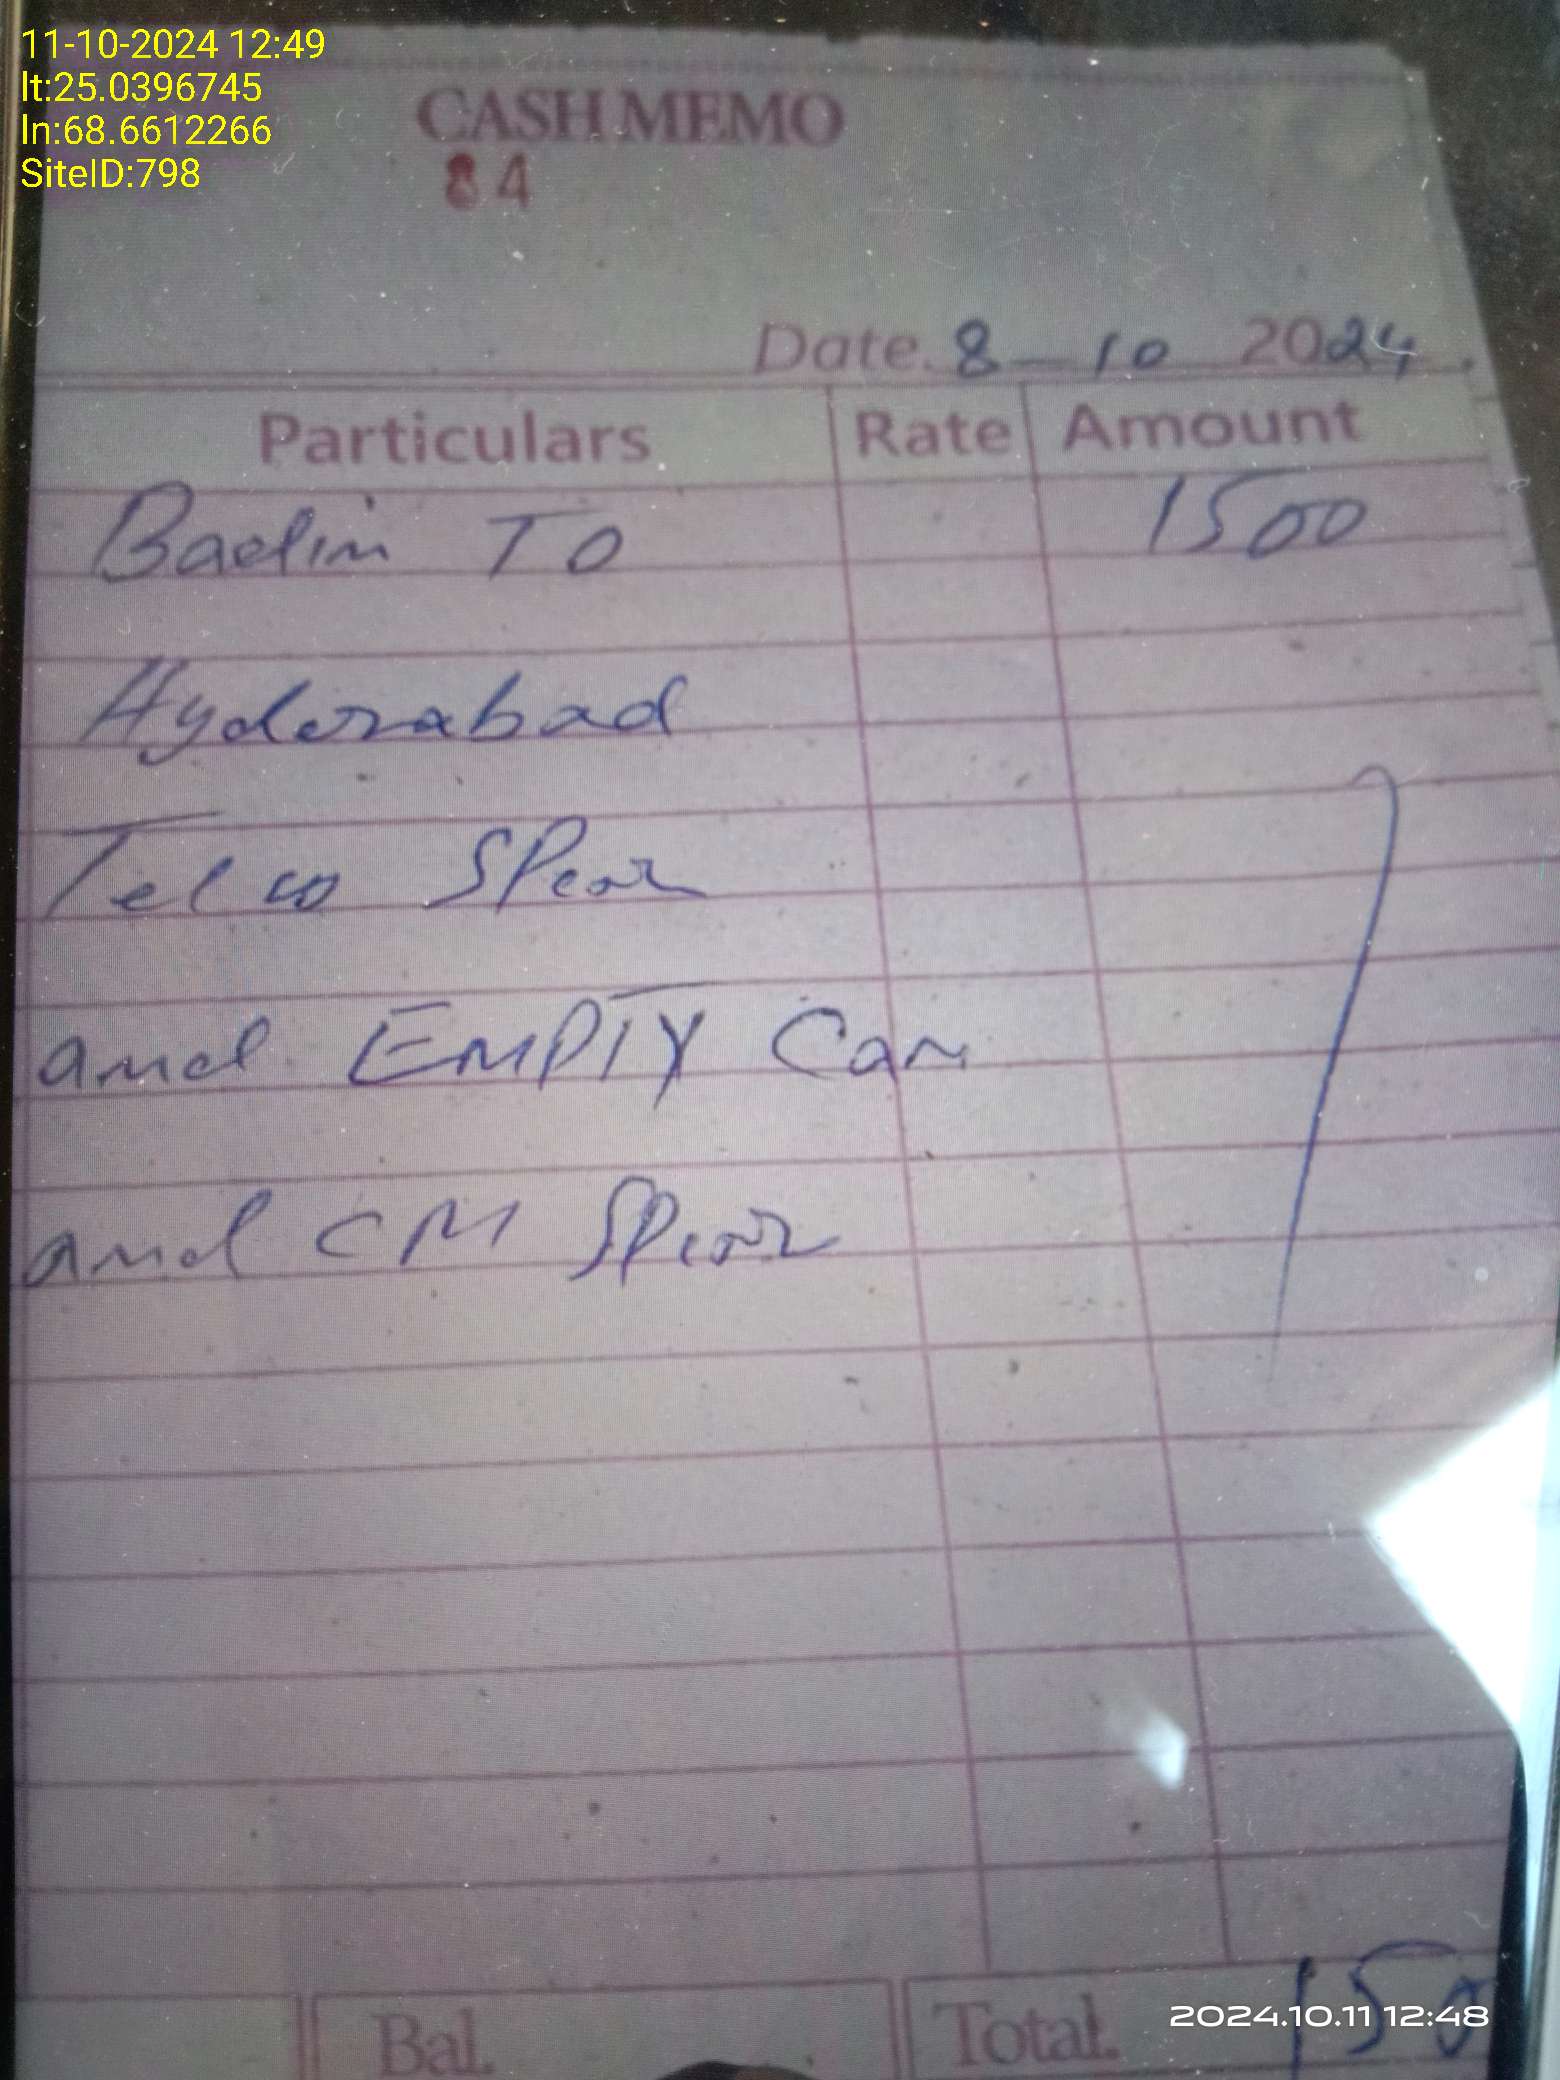 11-10-2024 12:49
lt:25.0396745
ln:68.6612266
SiteID:798
CASH MEMO
84
Date. 8-10 2024
Particulars Rate Amount
Badin TO 1500
Hyderabad
Telco SPear
and EMPTY Can
and CM SPear
Bal. Total. 150
2024.10.11 12:48